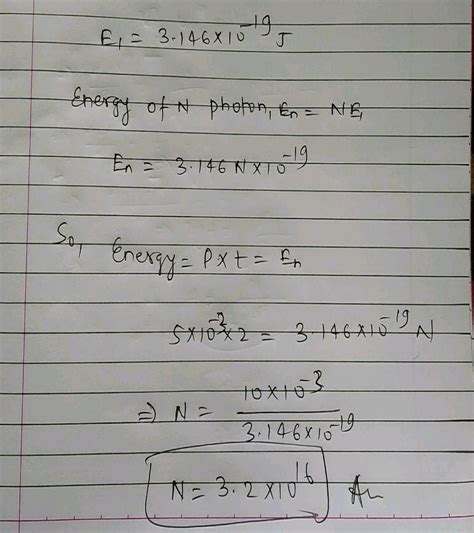 E₁ = 3.146×10⁻¹⁹ J
Energy of N photon, En = NE₁
En = 3.146 N×10⁻¹⁹
So, Energy = P×t = En
5×10⁻³×2 = 3.146×10⁻¹⁹ N
⇒ N = 10×10⁻³ / 3.146×10⁻¹⁹
N = 3.2×10¹⁶ An